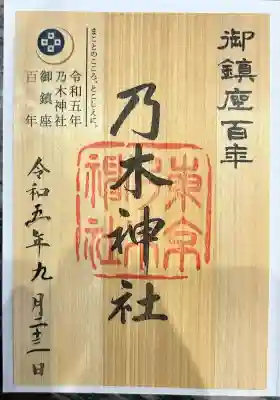 御鎮座百年
まことのこころ。とこしえに。
令和五年
乃木神社
御鎮座
百年
乃木神社
令和五年九月二十三日